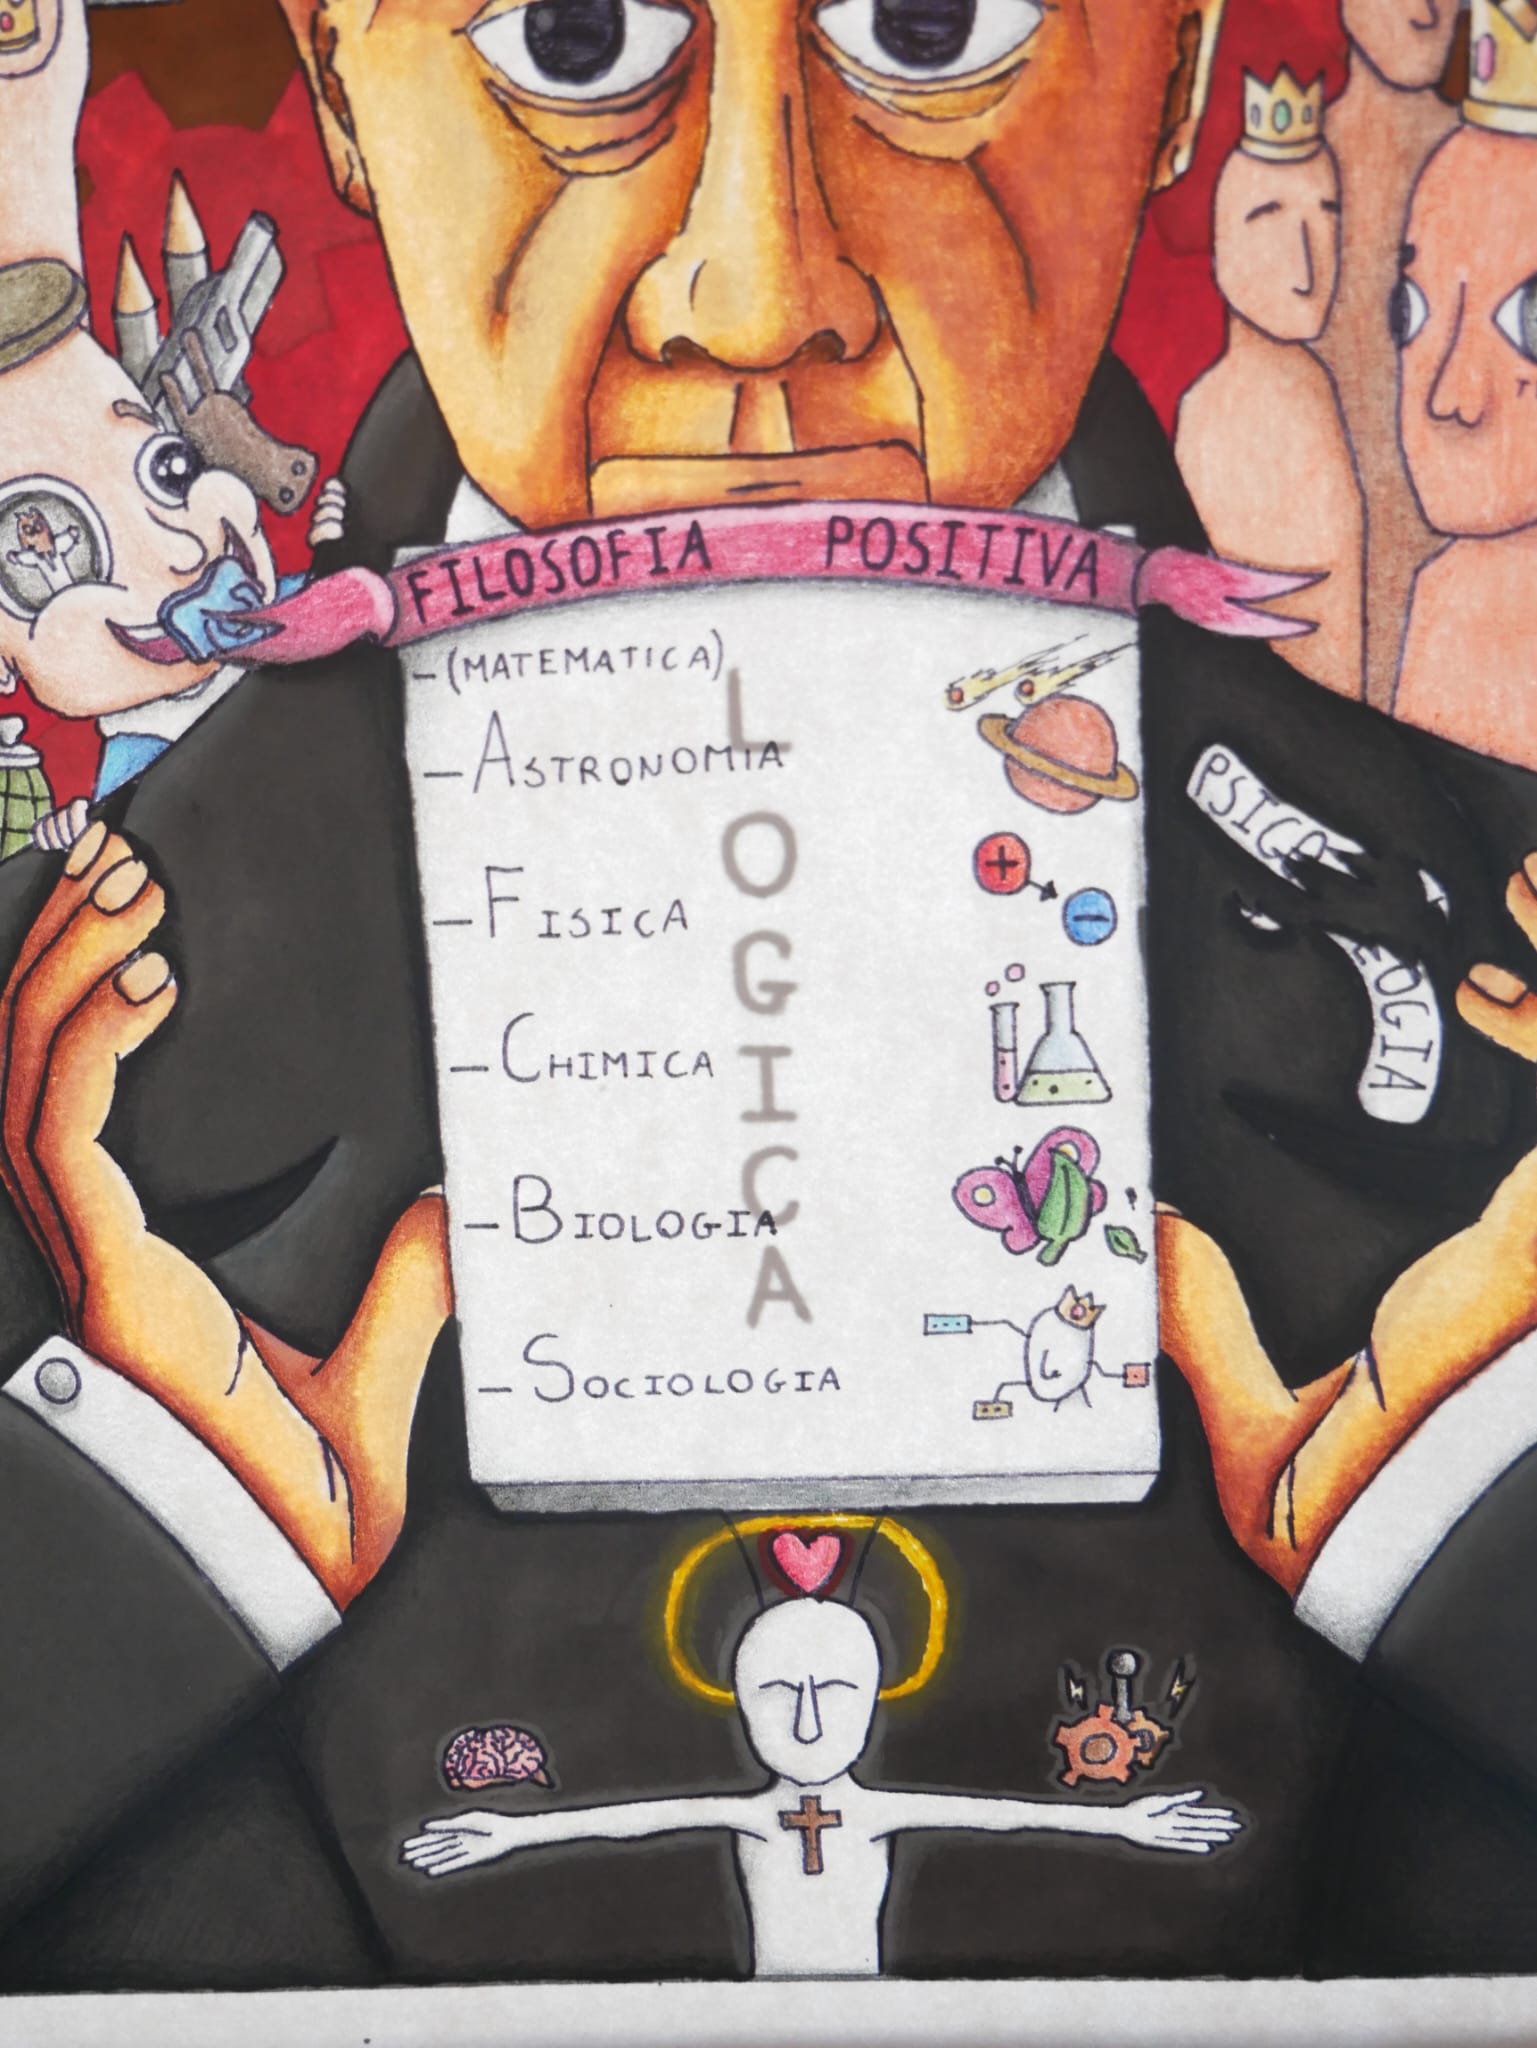 FILOSOFIA POSITIVA
-(MATEMATICA)
-ASTRONOMIA
-FISICA
-CHIMICA
-BIOLOGIA
-SOCIOLOGIA
LOGICA
PSICO
LOGIA
+
-